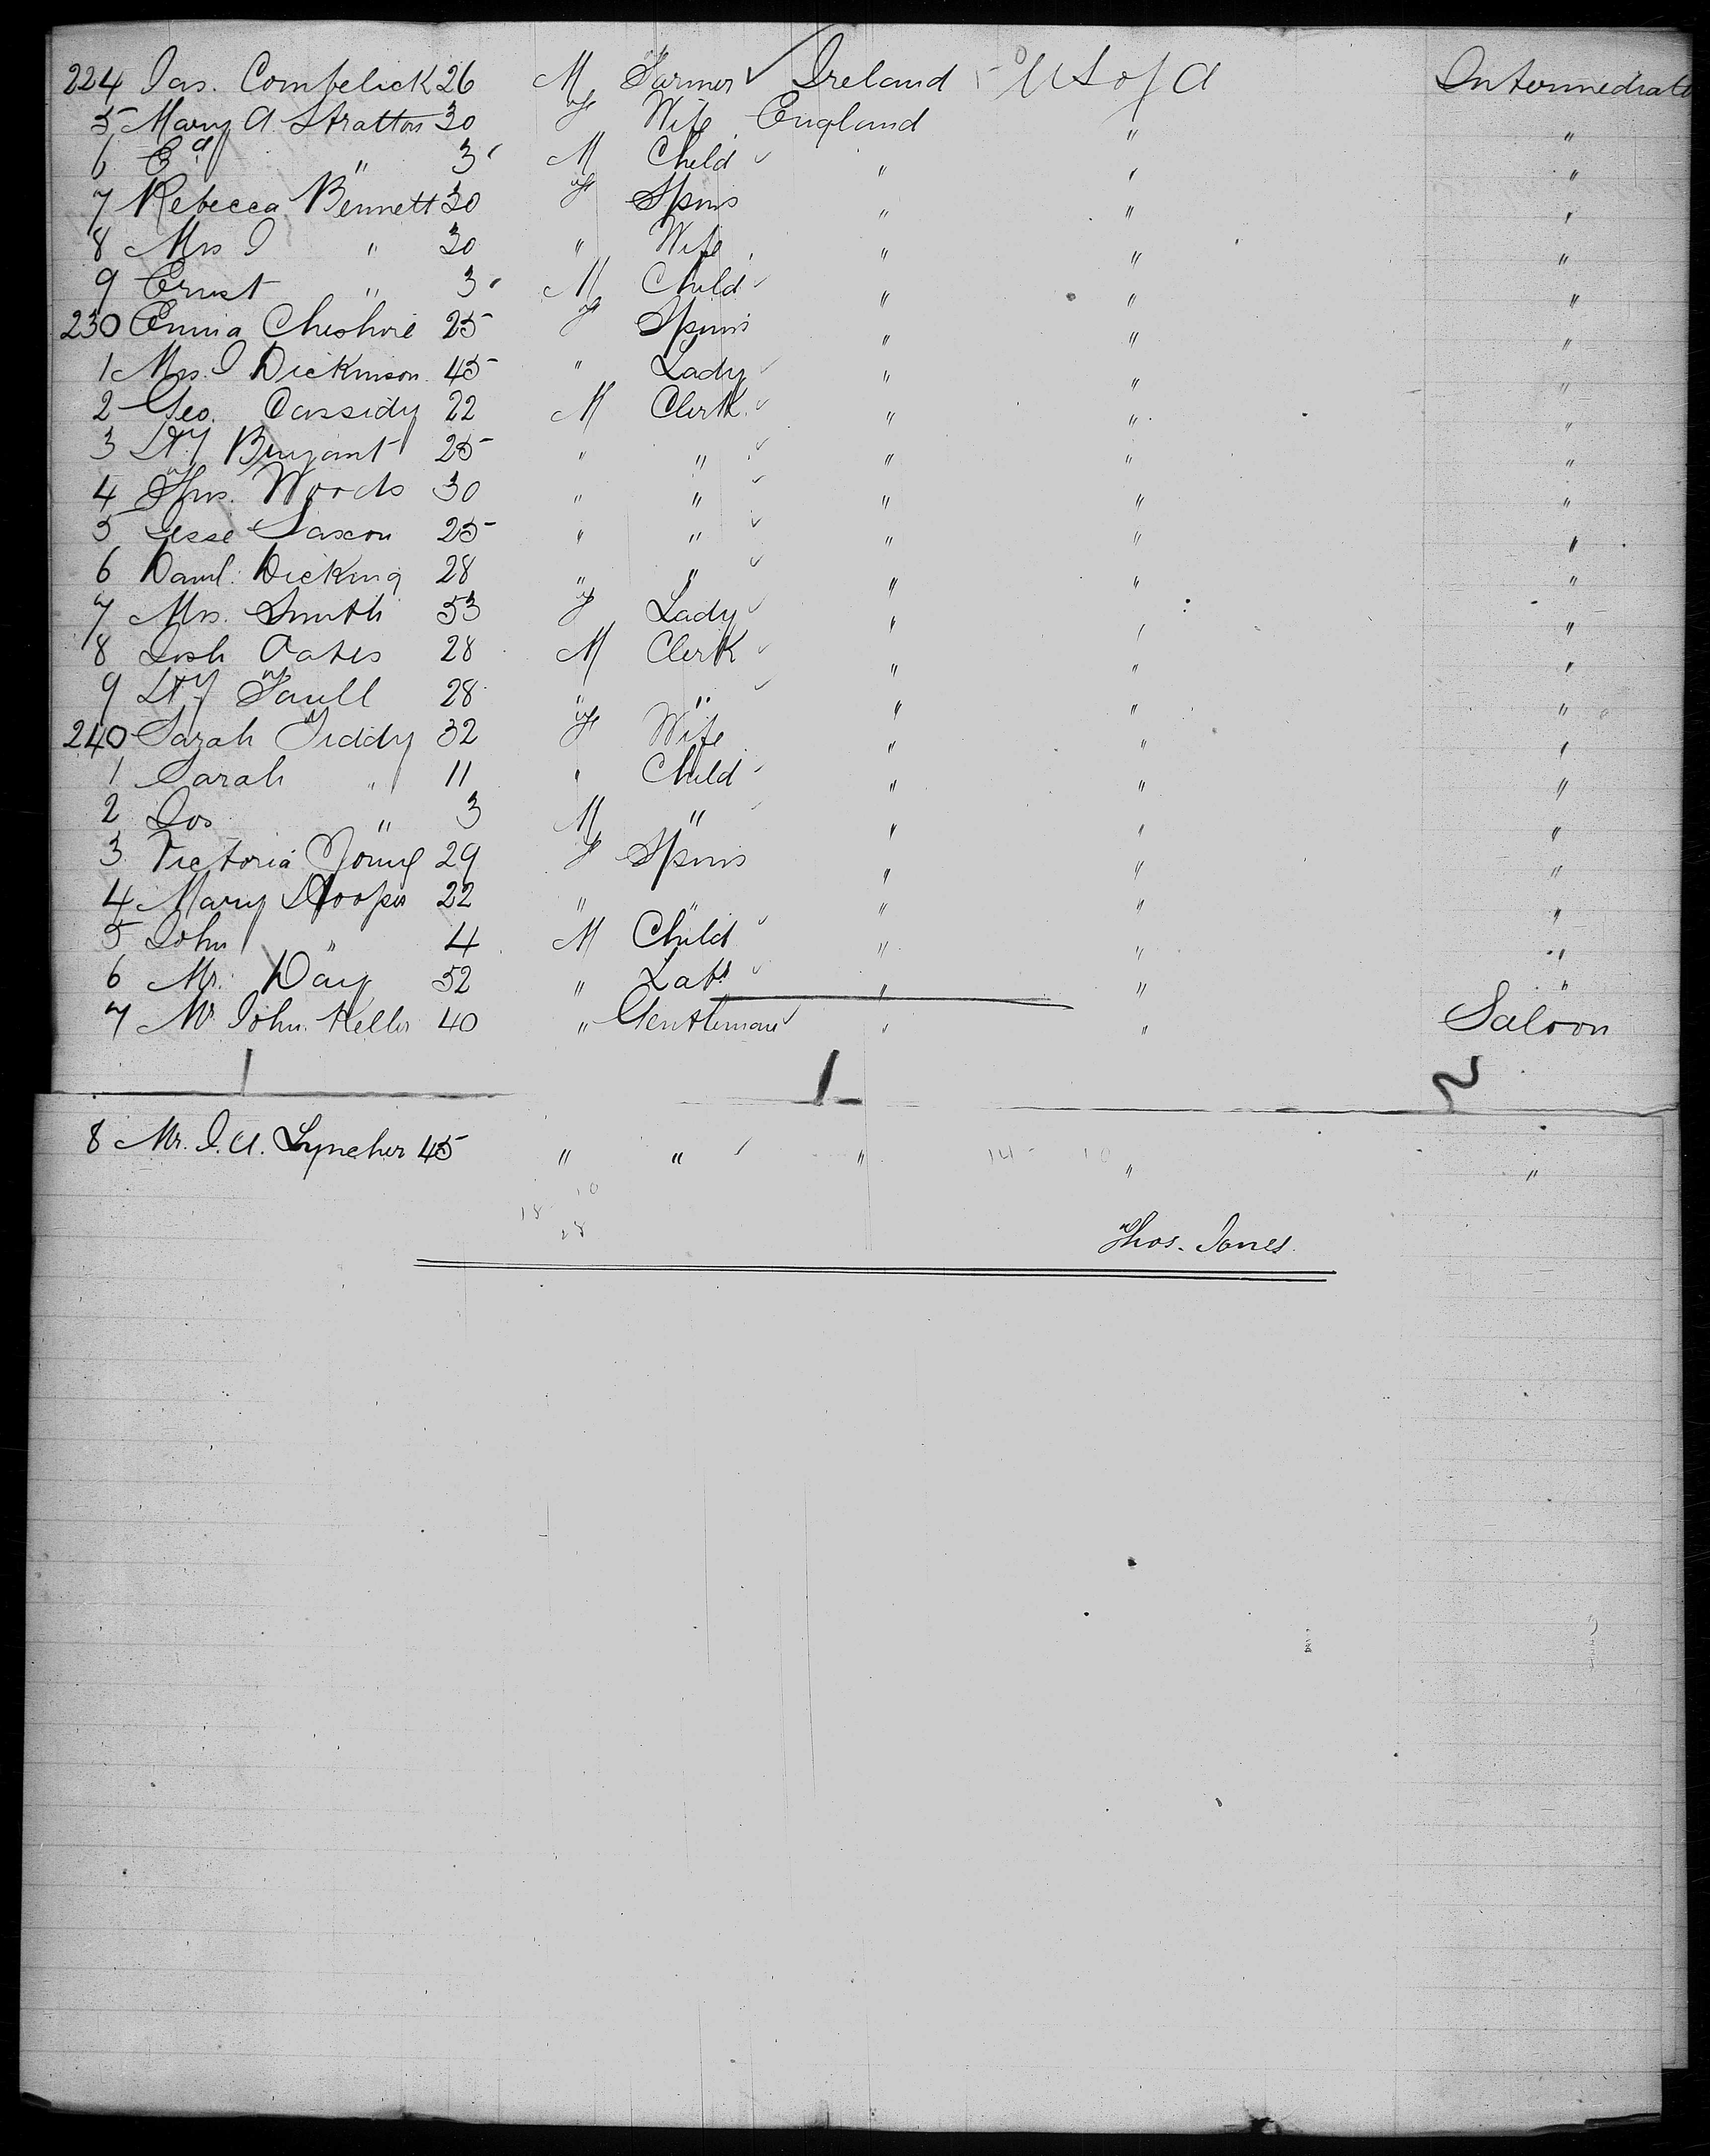 224 Jas. Combelick 26 M Farmer ✓ Ireland U S of A Intermediate
5 Mary A Stratton 30 F Wife England " "
6 Ed " 3 M Child ✓ " " "
7 Rebecca Bennett 30 F Spins " " "
8 Mrs J " 30 " Wife " " "
9 Ernst " 3 M Child ✓ " " "
230 Emma Cheshire 25 F Spins " " "
1 Mrs. J Dickinson 45 " Lady ✓ " " "
2 Geo. Cassidy 22 M Clerk ✓ " " "
3 Hy 25 " " ✓ " " "
4 Thos. Woods 30 " " ✓ " " "
5 Jesse Saxon 25 " " ✓ " " "
6 Danl. Dicking 28 " " ✓ " " "
7 Mrs. Smith 53 F Lady ✓ " " "
8 Josh Oates 28 M Clerk ✓ " " "
9 Hy 28 " " ✓ " " "
240 Sarah Tiddy 32 F Wife " " "
1 Sarah " 11 " Child ✓ " " "
2 Jos " 3 M " ✓ " " "
3 Victoria Young 29 F Spins " " "
4 Mary Hooper 22 " " " " "
5 John " 4 M Child ✓ " " "
6 Mr. Day 52 " Labr ✓ " " "
7 Mr John Keller 40 " Gentleman ✓ " " Saloon
1 1 2
8 Mr. J. A. Lyncher 45 " " ✓ " 14 10 " "
10
18
28
Thos. Jones